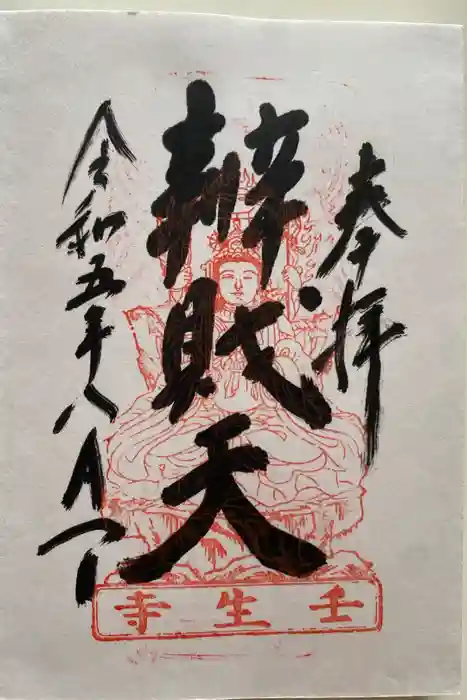 奉拝
辨財天
令和五年八月
壬生寺